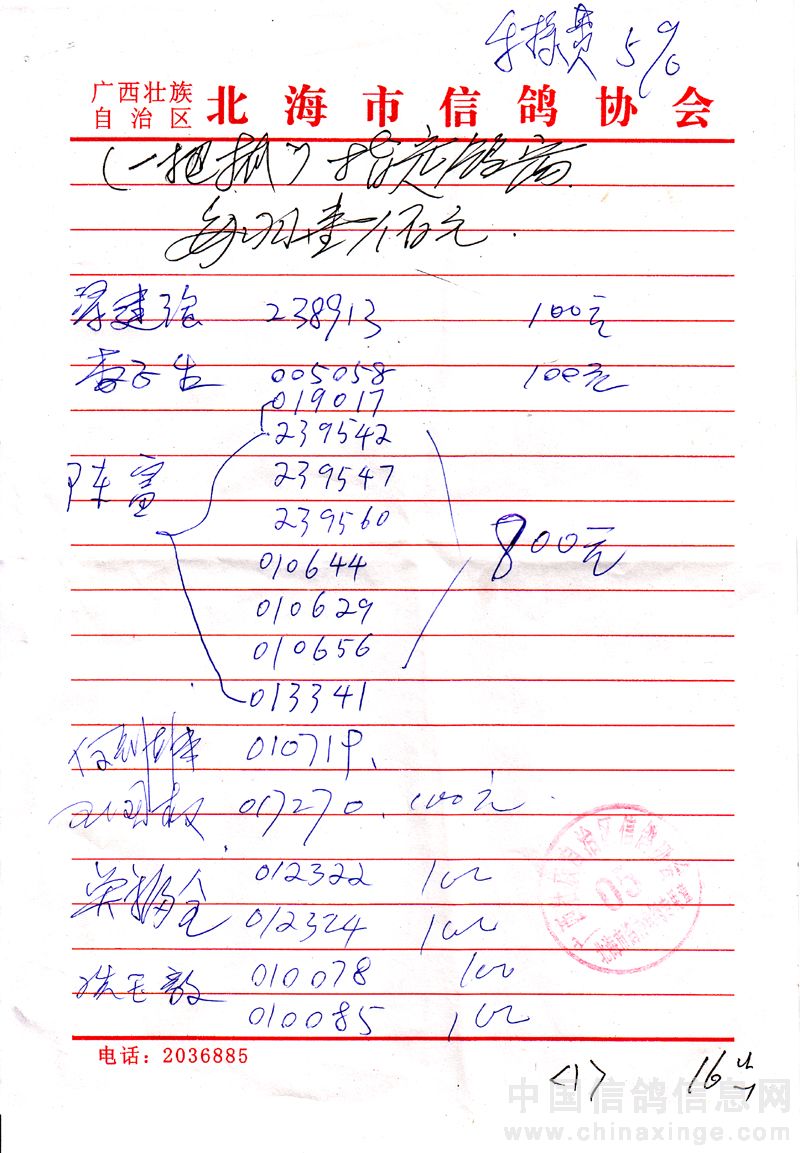 手续费 5%
广西壮族
自治区
北海市信鸽协会
(一把抓) 指定鸽
每羽壹佰元.
建强 238913 100元
李 生 005058 100元
019017
239542
239547
陈富
239560
800元
010644
010629
010656
013341
何 010719、
王国权 017270. 100元.
荣 全 012322 100
012324 100
洗玉 010078 100
010085 100
电话: 2036885
<1> 16羽
中国信鸽信息网
www.chinaxinge.com